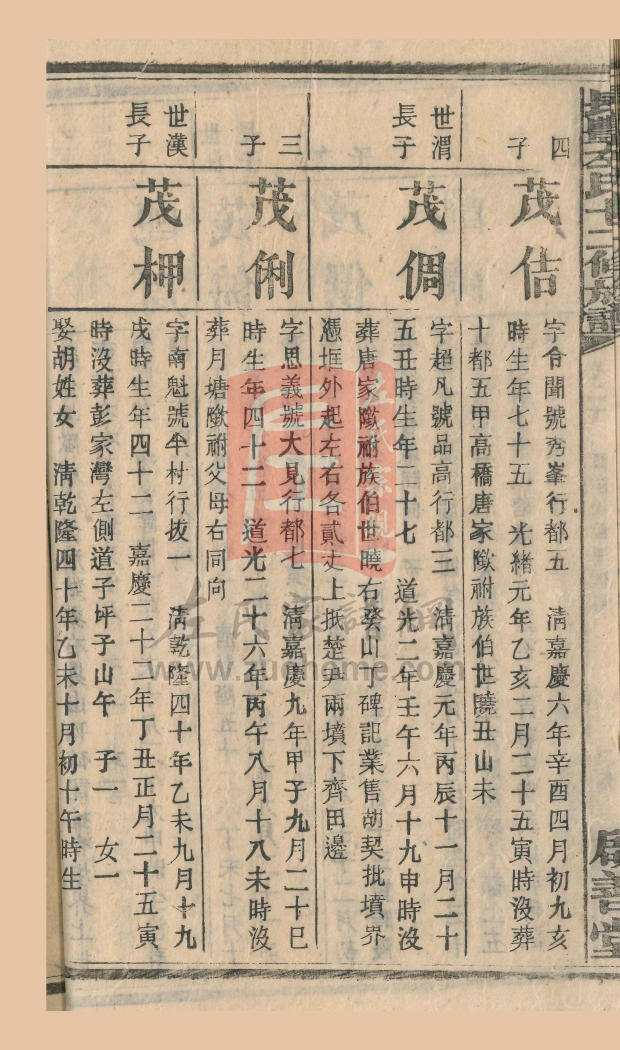 四
子
茂佶
字令聞號秀峯行都五　清嘉慶六年辛酉四月初九亥
時生年七十五　光緒元年乙亥二月二十五寅時沒葬
十都五甲高橋唐家墩祔族伯世曉丑山未
世渭
長子
茂倜
字超凡號品高行都三　清嘉慶元年丙辰十一月二十
五丑時生年二十七　道光二年壬午六月十九申時沒
葬唐家墩祔族伯世曉右癸山丁碑記業售胡契批墳界
憑堆外起左右各貳丈上抵楚尹兩墳下齊田邊
三
子
茂俐
字思義號大見行都七　清嘉慶九年甲子九月二十巳
時生年四十二　道光二十六年丙午八月十八未時沒
葬月塘墩祔父母右同向
世漢
長子
茂柙
字南魁號牛村行拔一　清乾隆四十年乙未九月十九
戌時生年四十二　嘉慶二十二年丁丑正月二十五寅
時沒葬彭家灣左側道子坪子山午　子一　女一
娶胡姓女　清乾隆四十年乙未十月初十午時生
左氏家譜網
www.zuohome.com